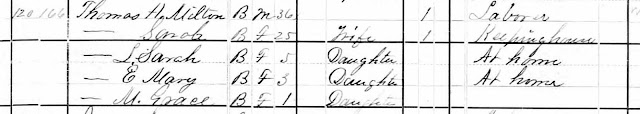 120 166 Thomas H. Milton B M 36 1 Laborer
— Sarah B F 25 Wife 1 Keeping house
— L. Sarah B F 5 Daughter At home
— E Mary B F 3 Daughter At home
— M. Grace B F 1 Daughter